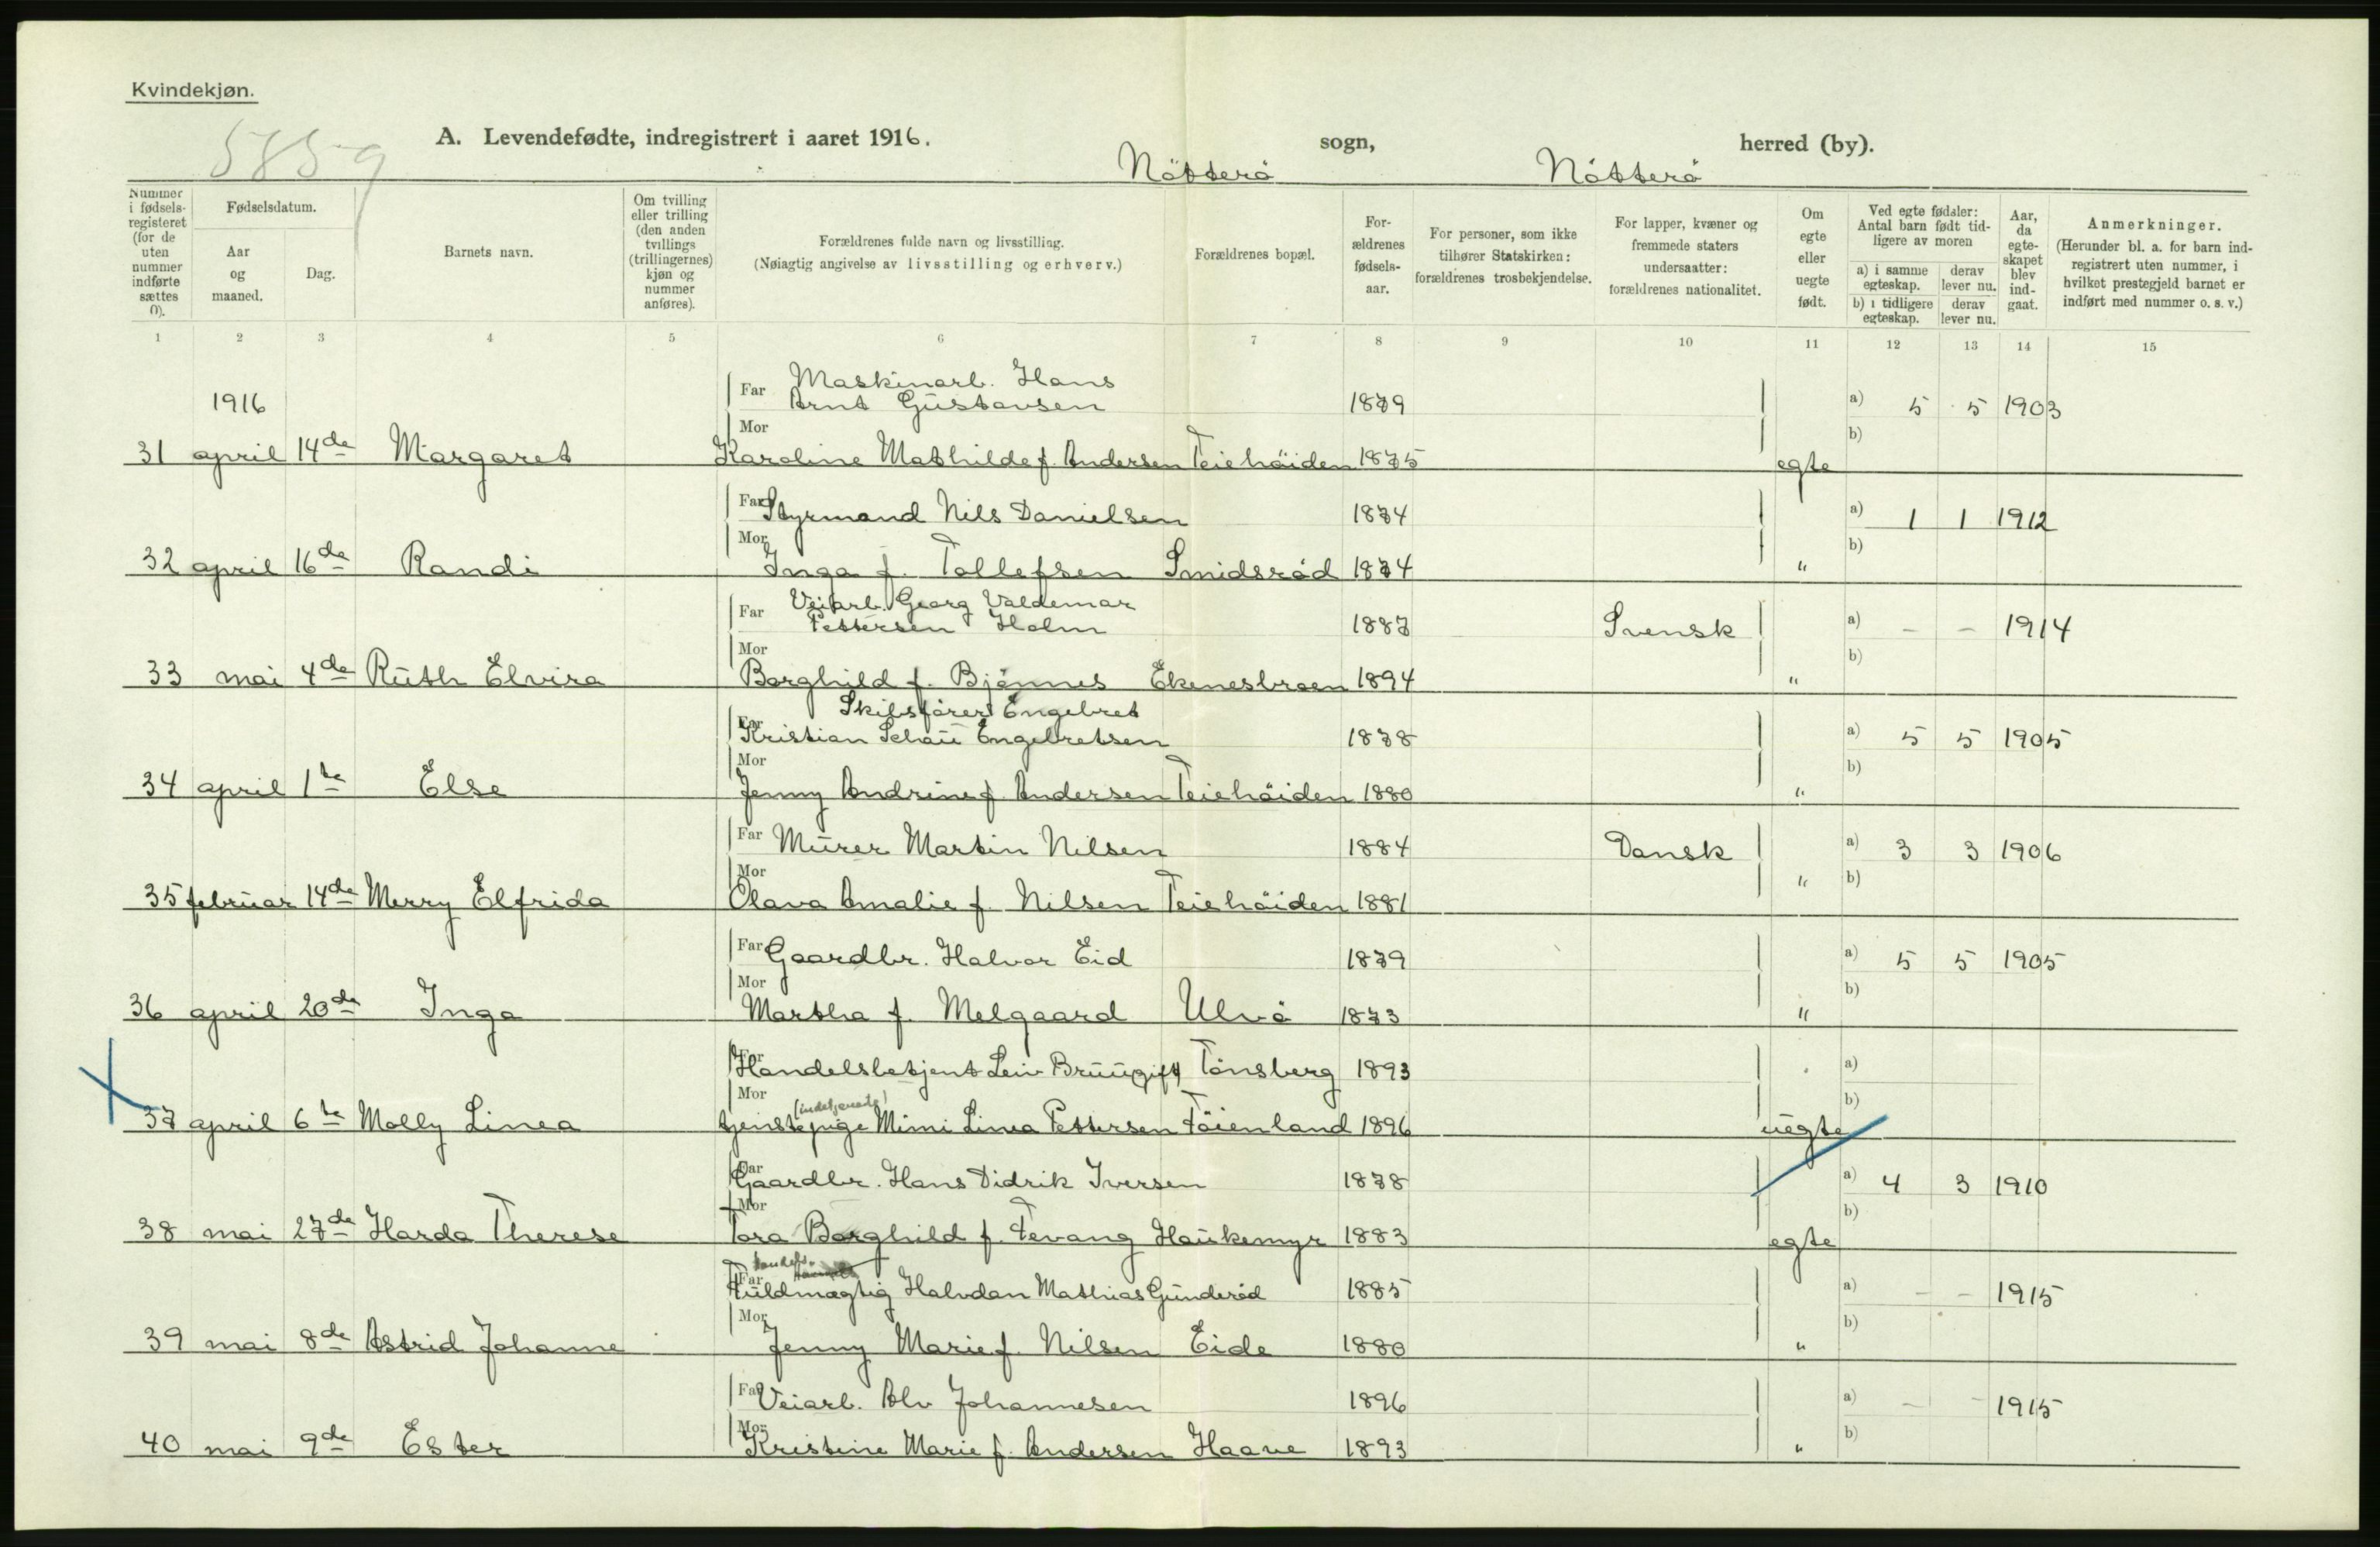 Kvindekjøn.
5859
A. Levendefødte, indregistrert i aaret 1916.
Nötterö sogn, Nötterö herred (by).
Nummer i fødselsregisteret (for de uten nummer indførte sættes 0).
Fødselsdatum.
Aar og maaned.
Dag.
Barnets navn.
Om tvilling eller trilling (den anden tvillings (trillingernes) kjøn og nummer anføres).
Forældrenes fulde navn og livsstilling.
(Nøiagtig angivelse av livsstilling og erhverv.)
Forældrenes bopæl.
Forældrenes fødselsaar.
For personer, som ikke tilhører Statskirken: forældrenes trosbekjendelse.
For lapper, kvæner og fremmede staters undersaatter: forældrenes nationalitet.
Om egte eller uegte født.
Ved egte fødsler: Antal barn født tidligere av moren
a) i samme egteskap. derav lever nu.
b) i tidligere egteskap. derav lever nu.
Aar, da egteskapet blev indgaat.
Anmerkninger.
(Herunder bl. a. for barn indregistrert uten nummer, i hvilket prestegjeld barnet er indført med nummer o. s. v.)
1 2 3 4 5 6 7 8 9 10 11 12 13 14 15
1916
Far Maskinarb. Hans
Arnt Gustavsen 1879 a) 5 5 1903
Mor b)
31 april 14de Margaret Karoline Mathilde f. Andersen Teiehöiden 1875 egte
Far Styrmand Nils Danielsen 1874 a) 1 1 1912
Mor b)
32 april 16de Randi Inga f. Tollefsen Smidsröd 1874 "
Far Veiarb. Georg Valdemar
Pettersen Holm 1887 Svensk a) - - 1914
Mor b)
33 mai 4de Ruth Elvira Borghild f. Bjönnes Ekenesbroen 1894 "
Skibsförer Engebret
Far Kristian Schau Engebretsen 1878 a) 5 5 1905
Mor b)
34 april 1te Else Jenny Andrine f. Andersen Teiehöiden 1880 "
Far Murer Martin Nilsen 1884 Dansk a) 3 3 1906
Mor b)
35 februar 14de Merry Elfrida Olava Amalie f. Nilsen Teiehöiden 1881 "
Far Gaardbr. Halvor Eid 1879 a) 5 5 1905
Mor b)
36 april 20de Inga Martha f. Melgaard Ulvö 1873 "
Far Handelsbetjent Leiv Bru ugift Tönsberg 1893 a)
Mor (indetjenede) b)
37 april 6te Molly Linea tjenstepige Mimi Linea Pettersen Föienland 1896 uegte
Far Gaardbr. Hans Didrik Iversen 1878 a) 4 3 1910
Mor b)
38 mai 27de Harda Therese Tora Borghild f. Fevang Haukemyr 1883 egte
Far Fuldmægtig Halvdan Mathias Gunderöd 1885 a) - - 1915
Mor b)
39 mai 8de Astrid Johanne Jenny Marie f. Nilsen Eide 1880 "
Far Veiarb. Alv Johannesen 1896 a) - - 1915
Mor b)
40 mai 9de Ester Kristine Marie f. Andersen Haave 1893 "